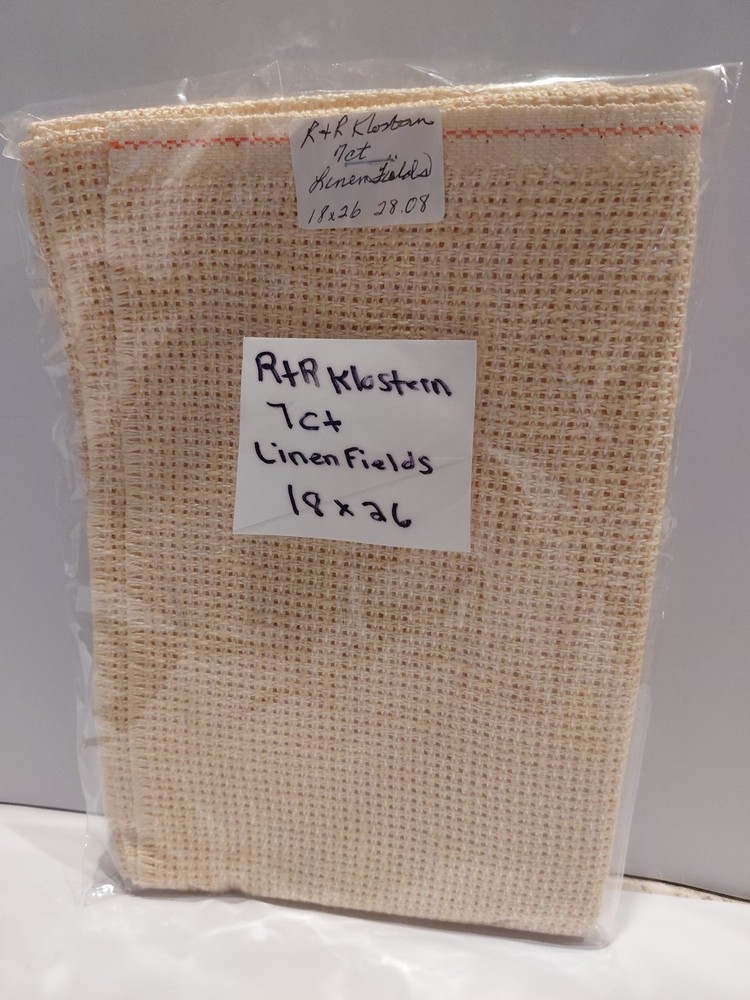 R+R Klostern
7ct
Linen Fields
18x26 28.08
R+R Klostern
7ct
Linen Fields
18 x 26